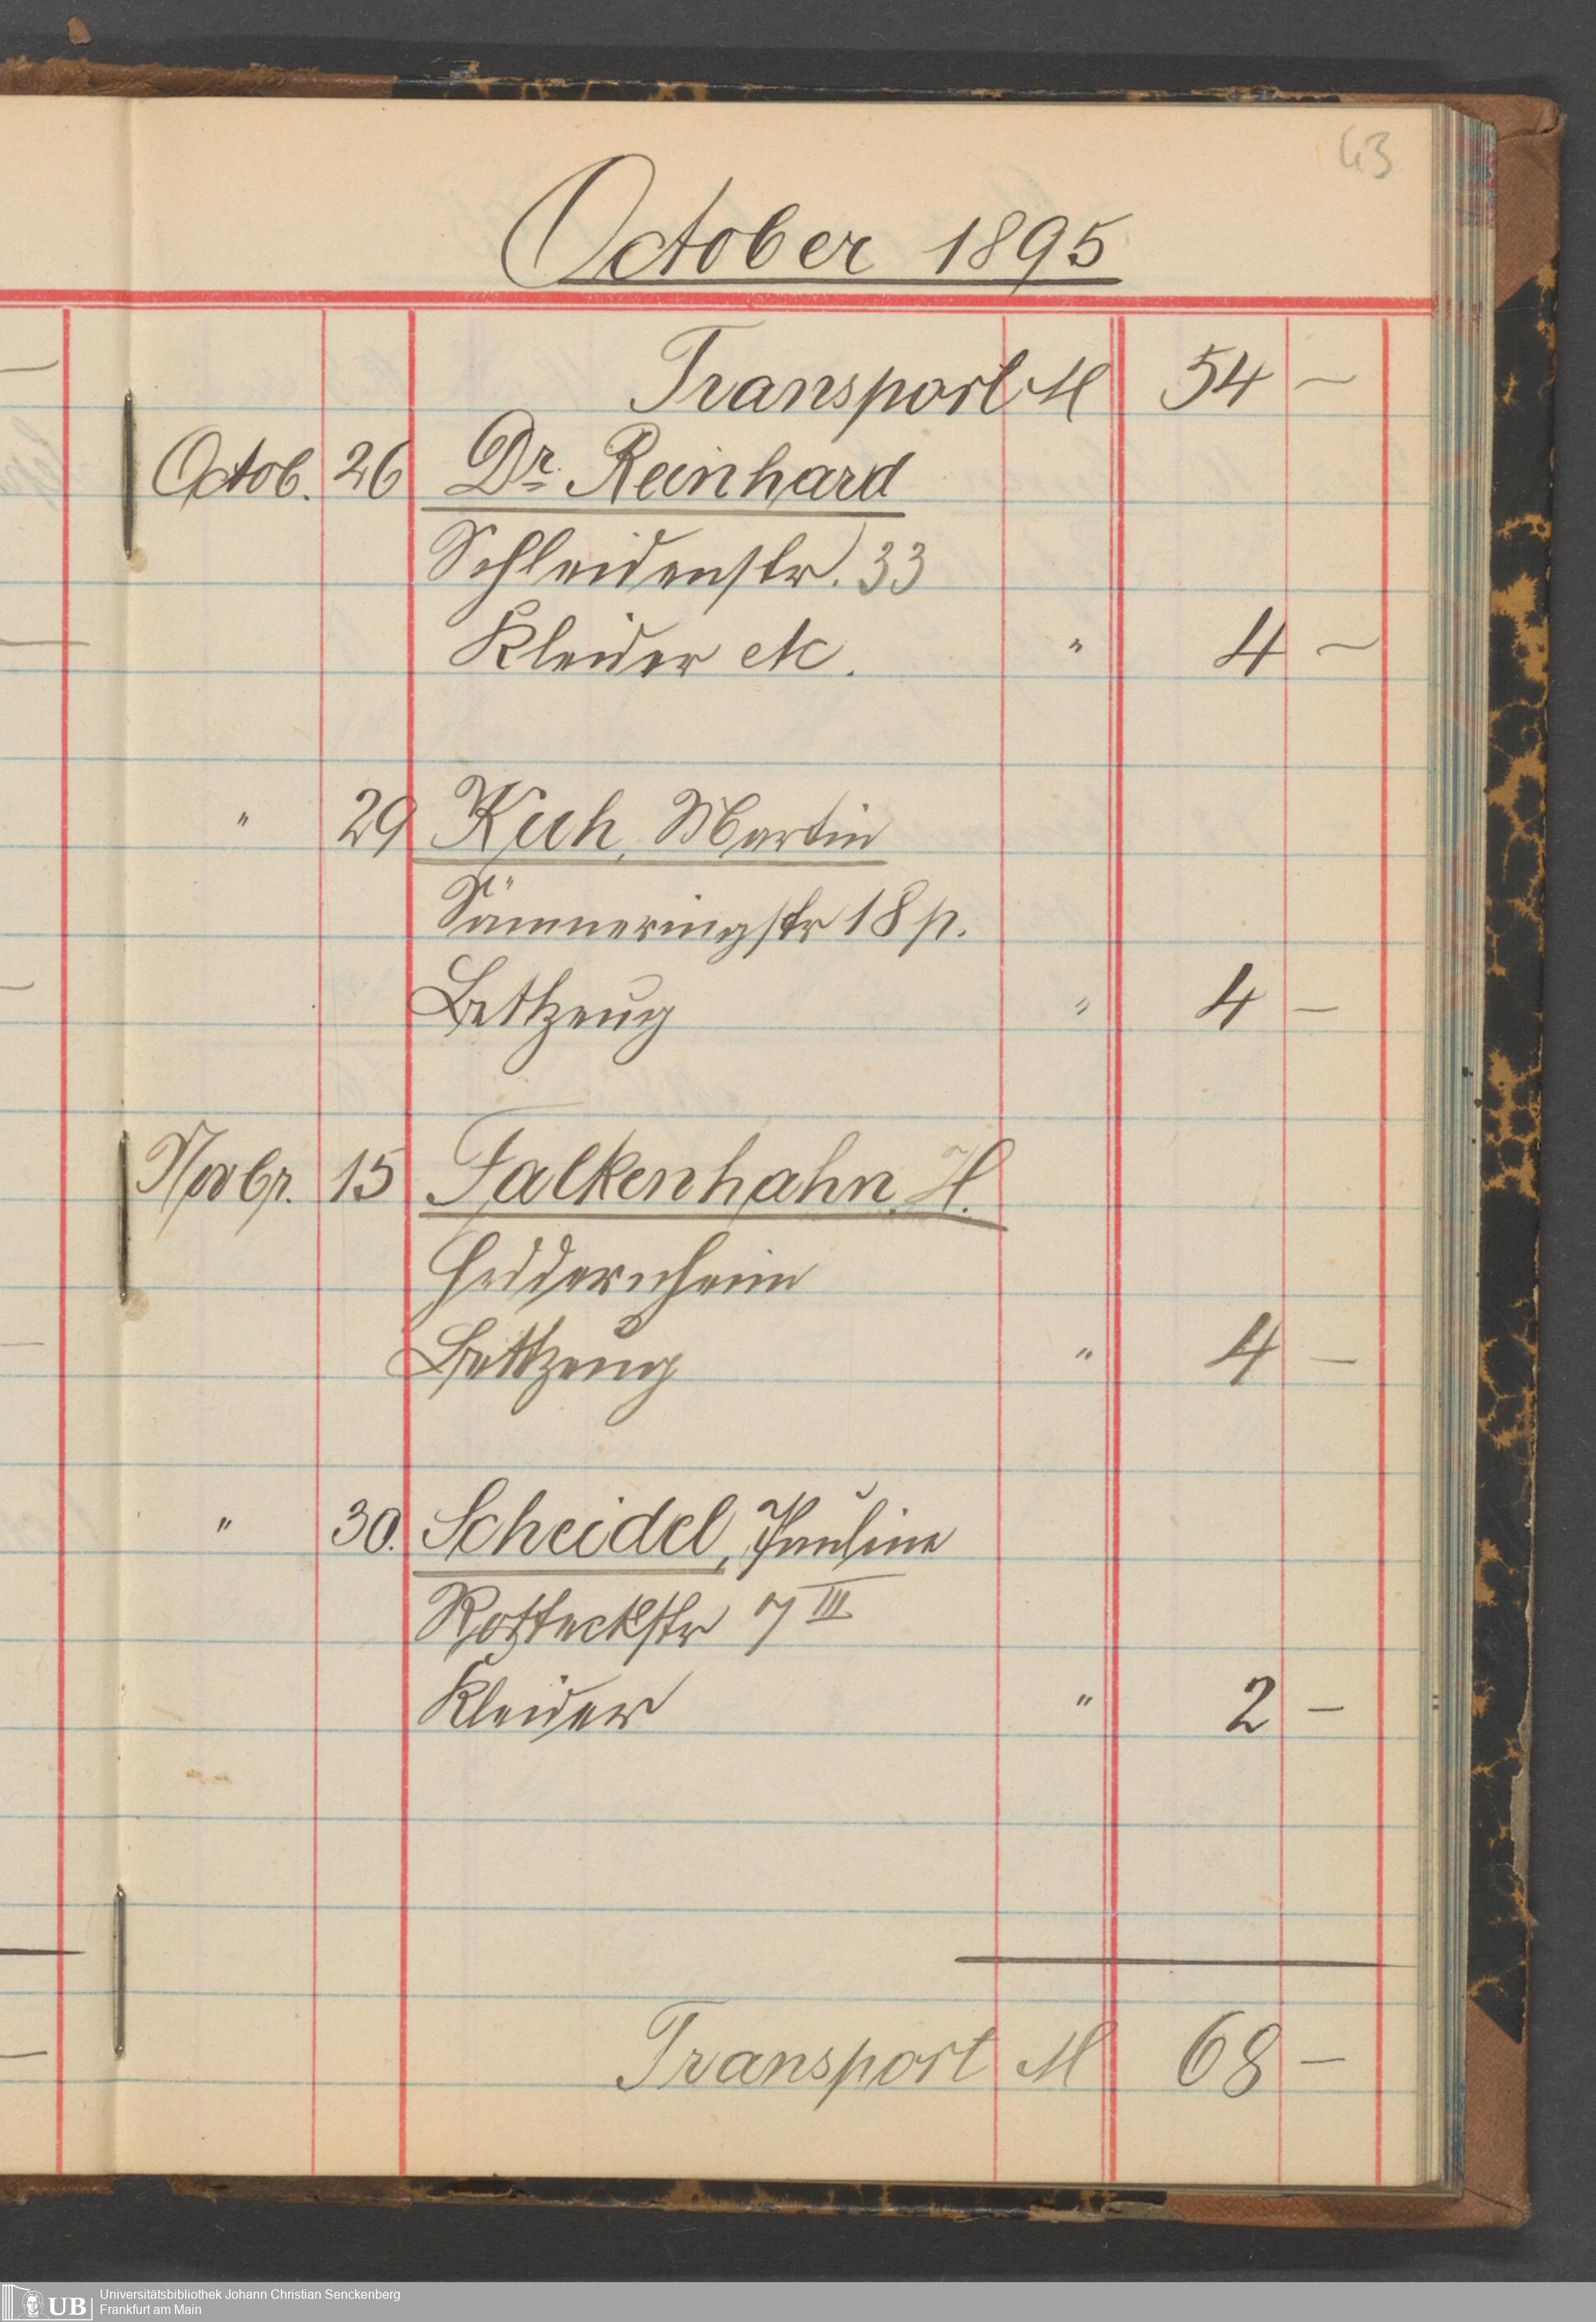 43
October 1895
Transport M 54 —
Octob. 26 Dr. Reinhard
Schleidenstr. 33
Kleider etc. " 4 —
" 29 Kuh, Martin
Sömmeringstr 18 p.
Bettzeug " 4 —
Novbr. 15 Falkenhahn H.
Heddernheim
Bettzeug " 4 —
" 30. Scheidel, Pauline
Rotteckstr 7 III
Kleider " 2 —
Transport M 68 —
UB Universitätsbibliothek Johann Christian Senckenberg
Frankfurt am Main